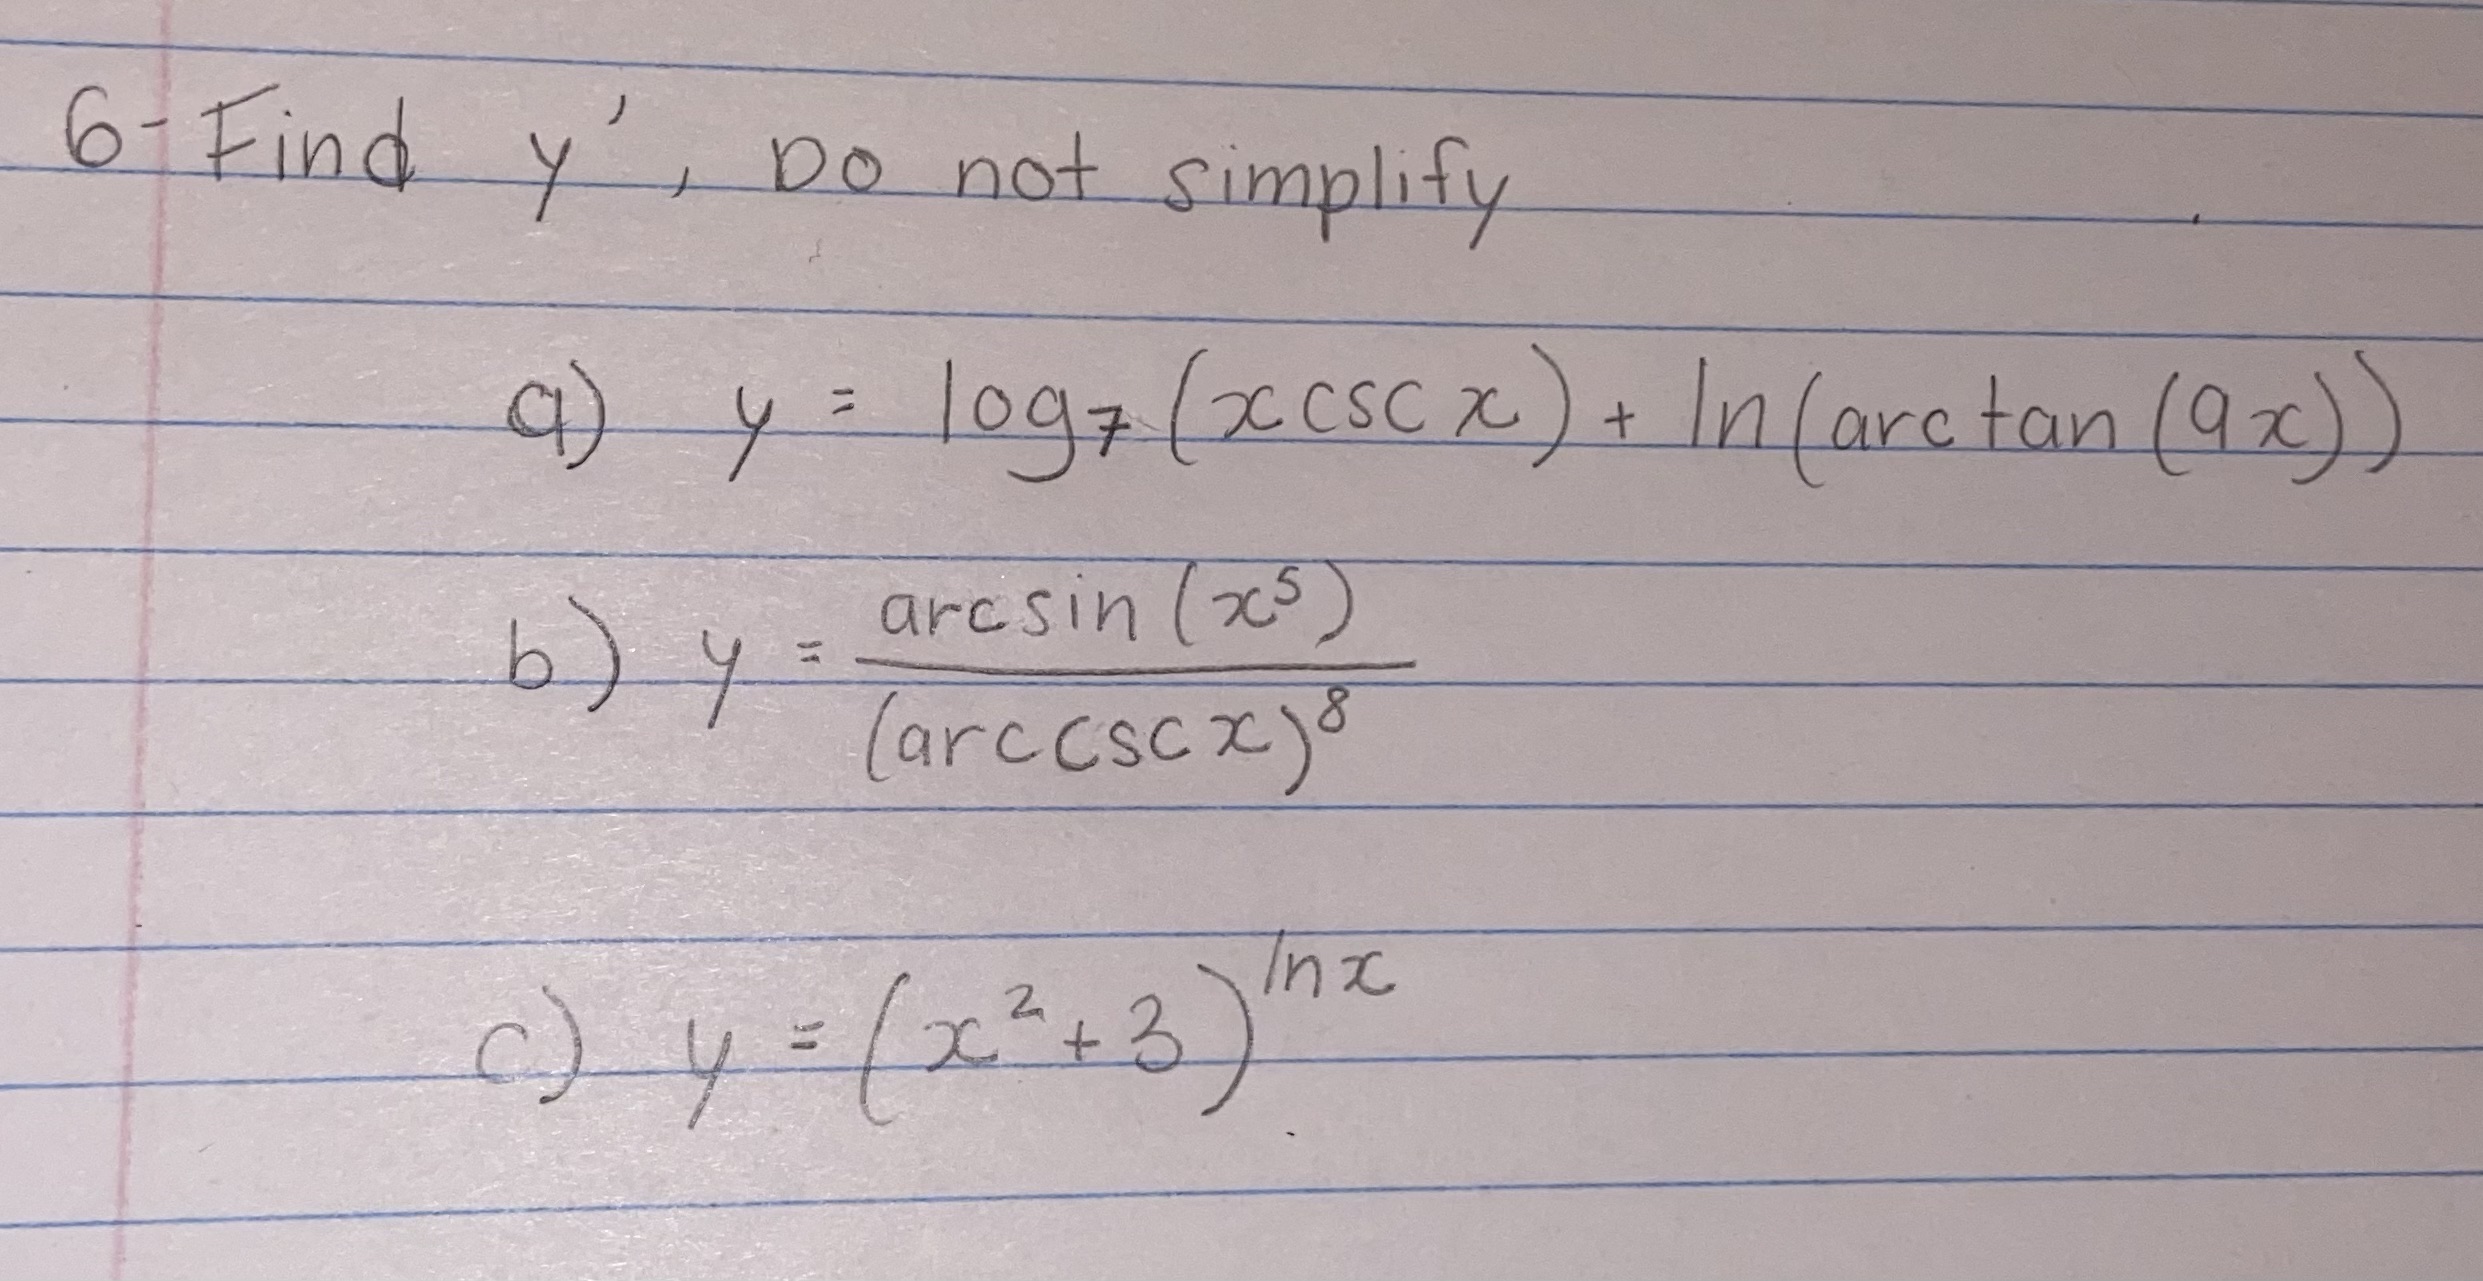 6- Find y', Do not simplify
a) y = log₇(x csc x) + ln(arctan(9x))
b) y = arcsin(x⁵) / (arccsc x)⁸
c) y = (x²+3)^(ln x)